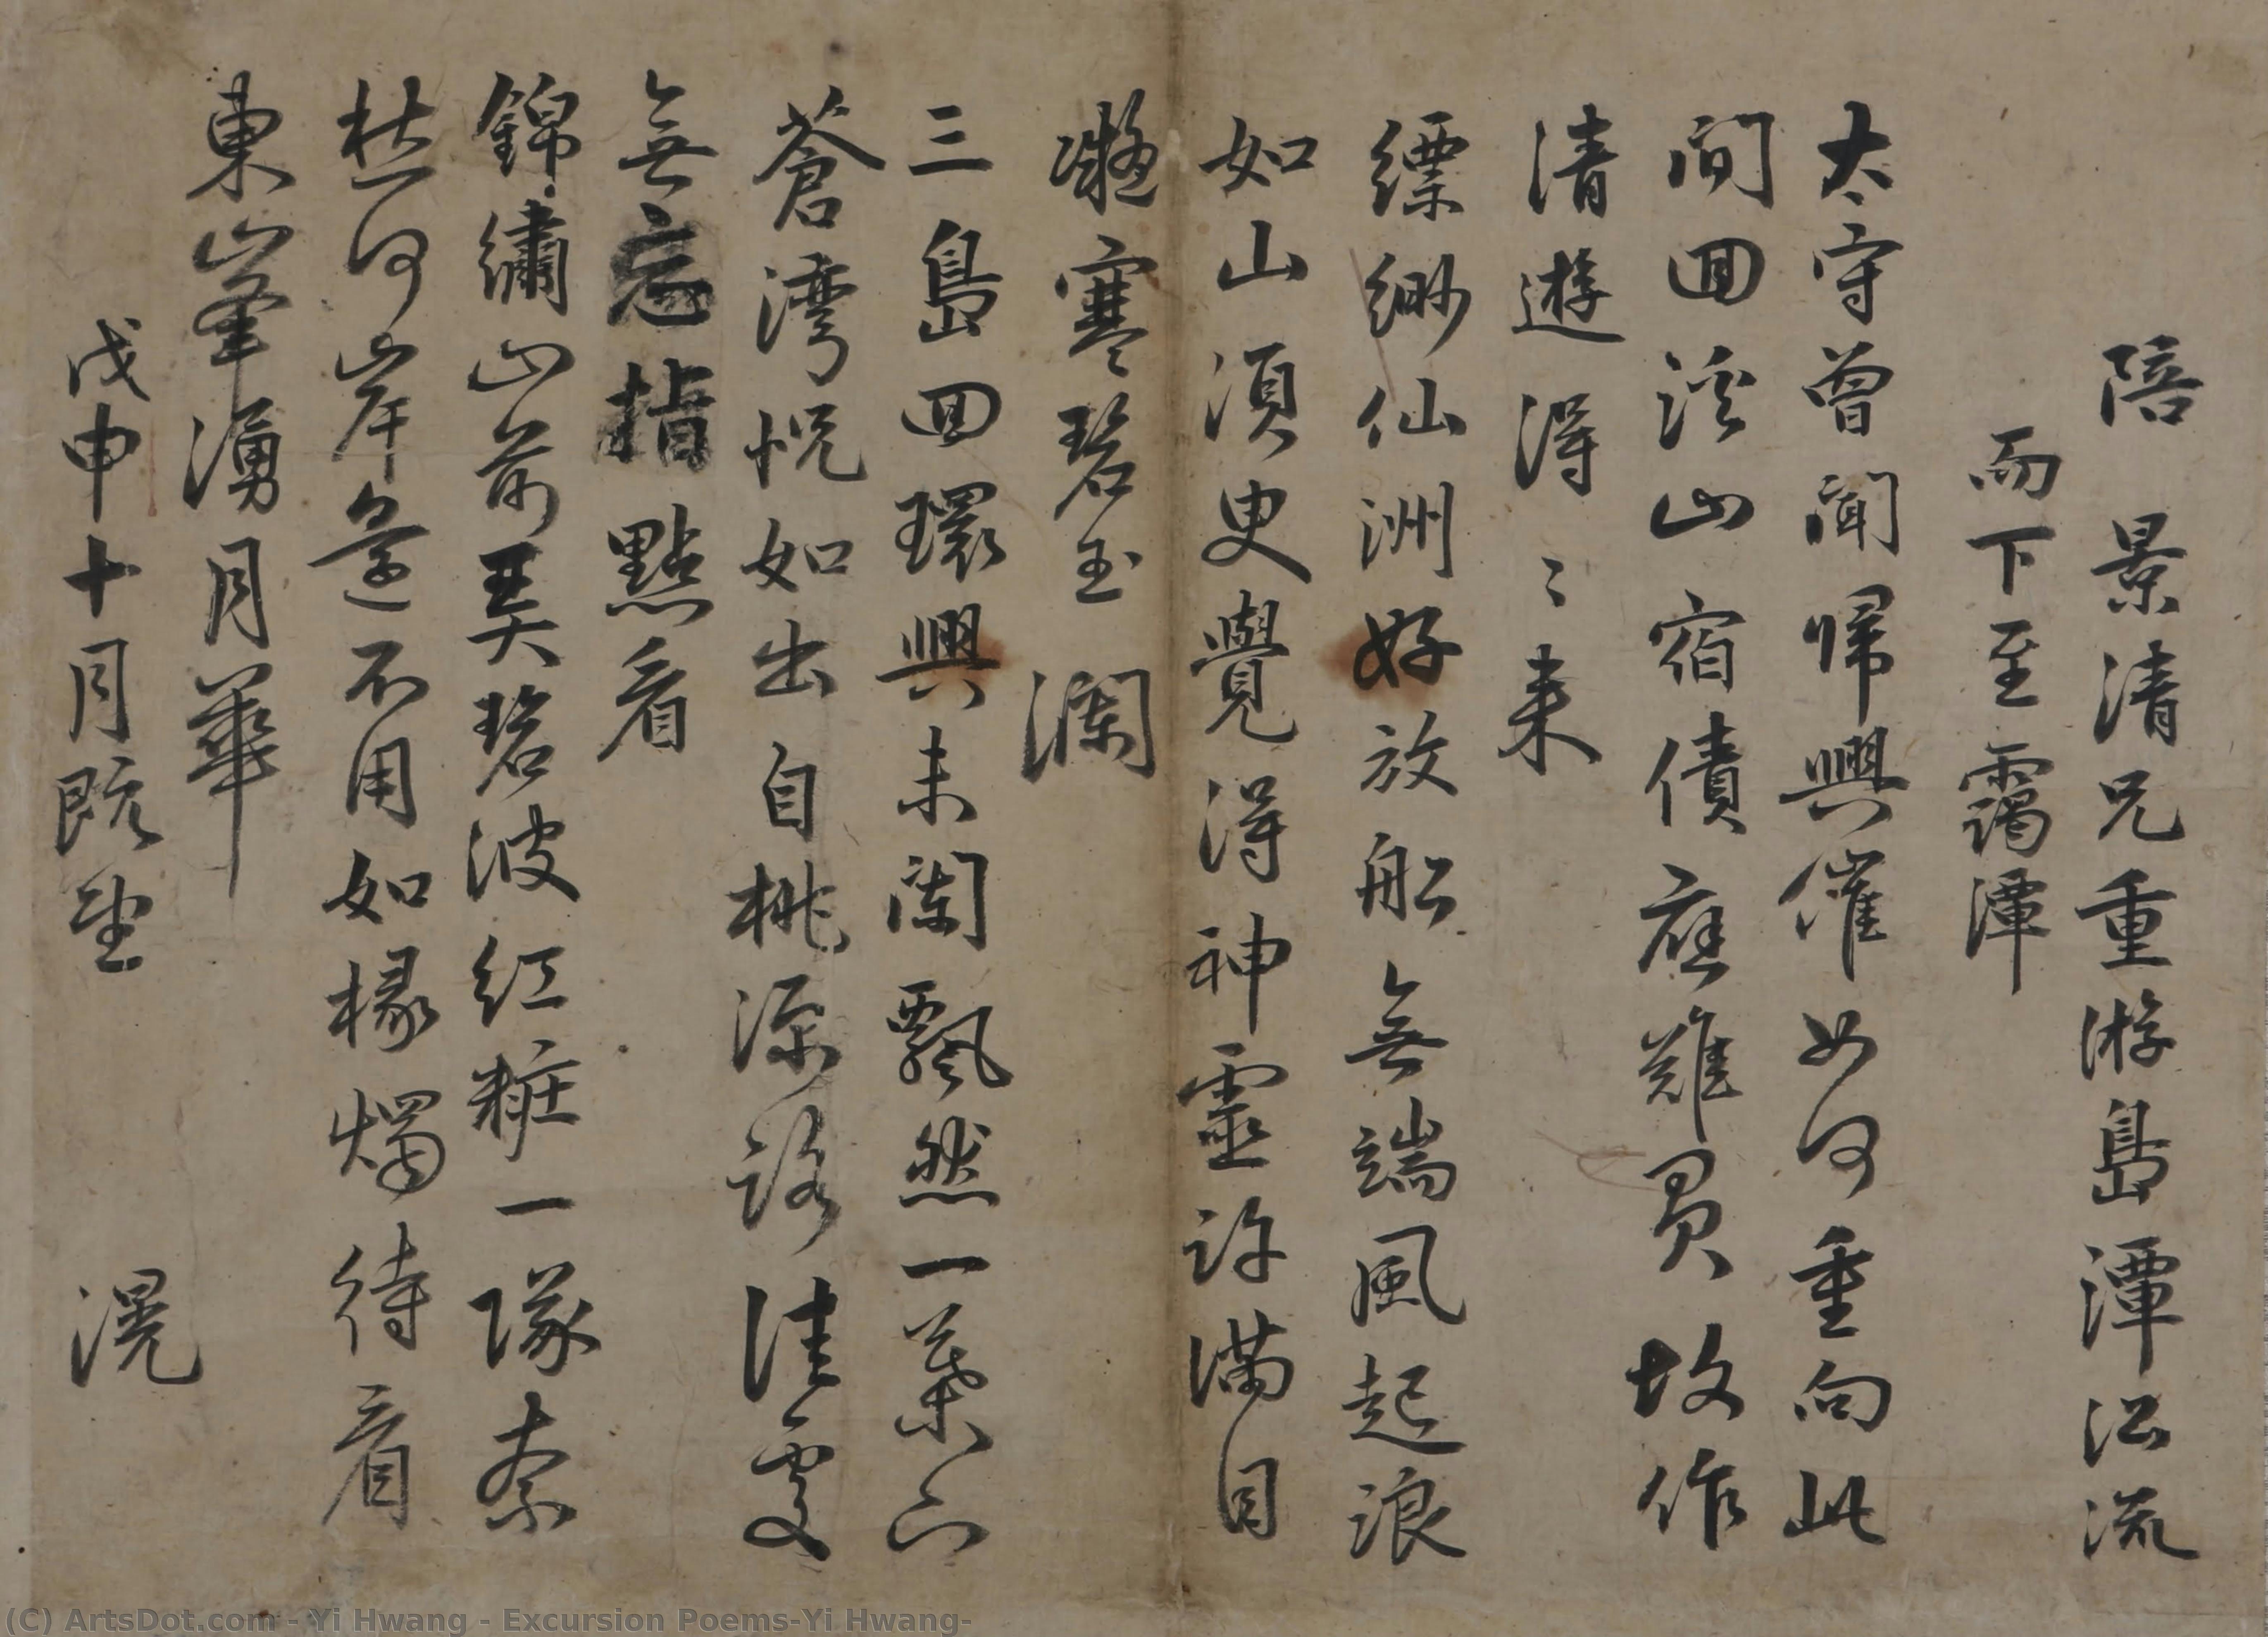 陪 景清兄重游島潭沿流
而下至靄潭
太守曾聞歸興催如何重向此
间回溪山宿債應難買故作
清遊得〻來
縹緲仙洲好放船無端風起浪
如山須臾覺得神靈許滿目
凝寒碧玉瀾
三島回環興未闌飄然一葉下
蒼湾怳如出自桃源路佳處
無忘指點看
錦繡山前弄碧波紅粧一隊奈
愁何岸邊不用如椽燭待看
東峯湧月華
戊申十月既望 滉
(C) ArtsDot.com - Yi Hwang - Excursion Poems-Yi Hwang-